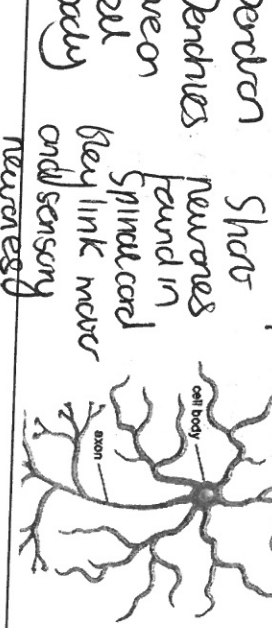 Dendrites
cell
body
Short
neurones
found in
spinal cord
they link motor
and sensory
neurones
cell body
axon